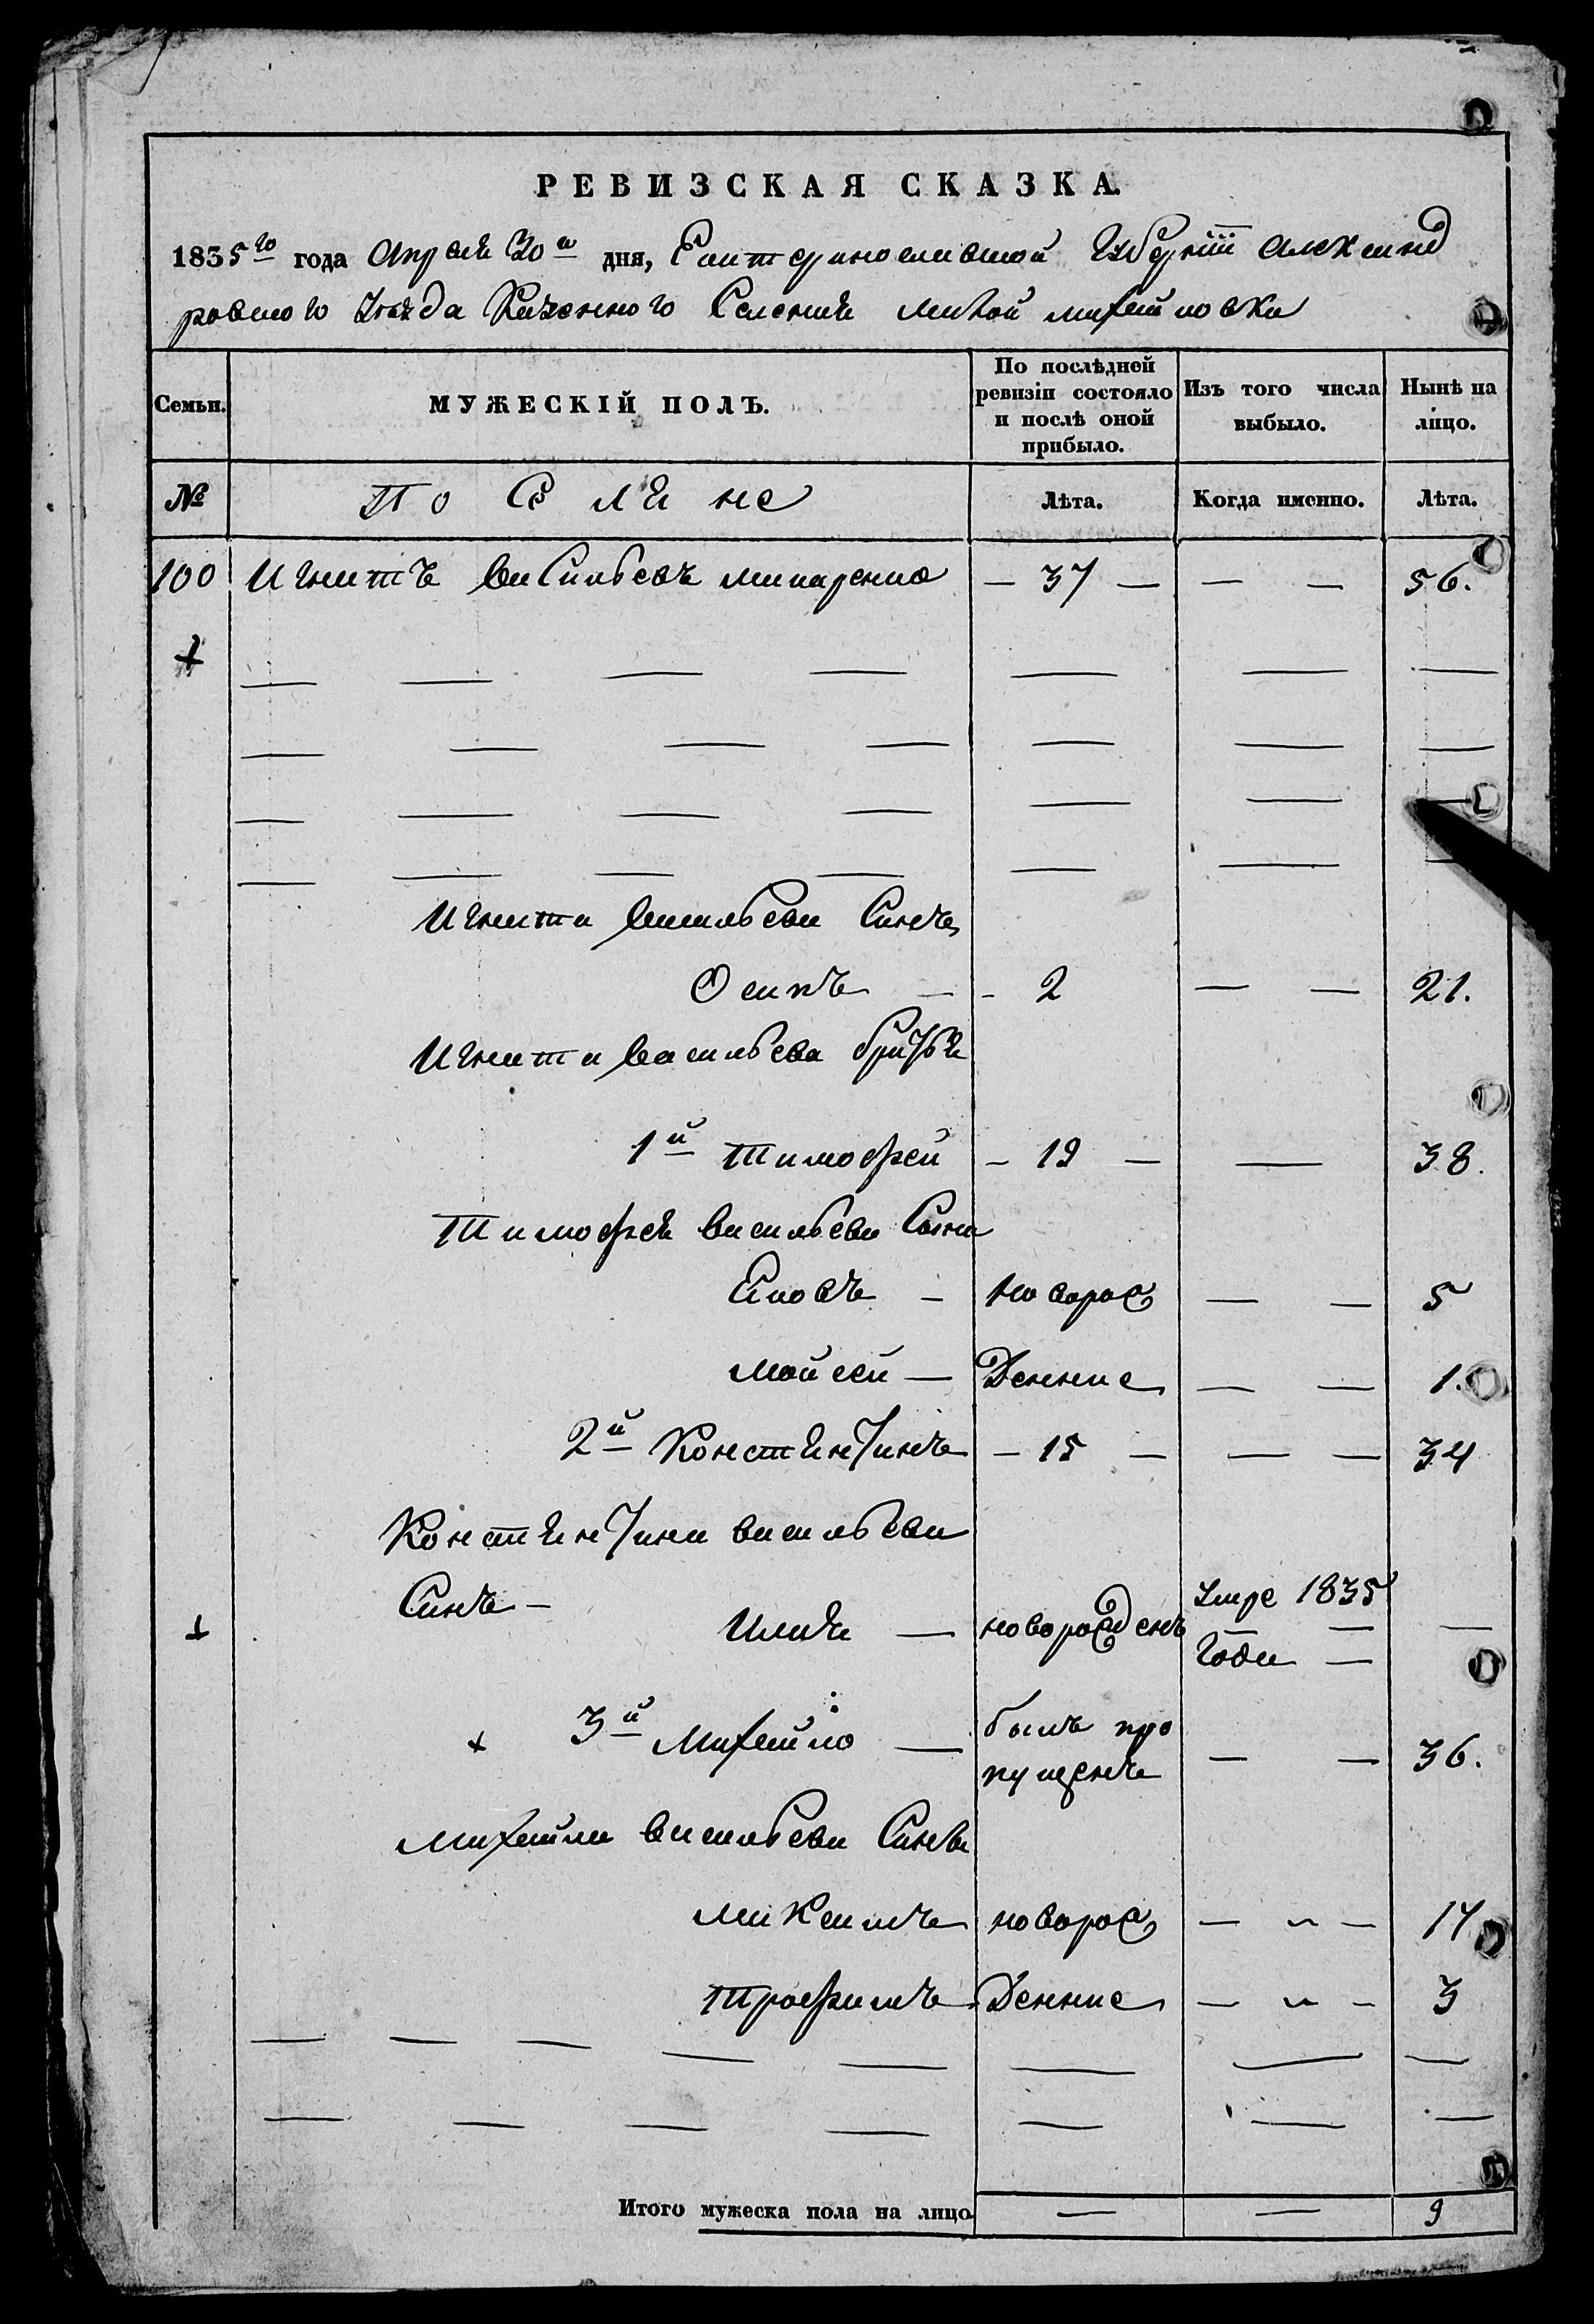 РЕВИЗСКАЯ СКАЗКА.
1835го года Апреля 30а дня, Екатеринославской Губернiи Александ
ровского Уезда Казенного Селения малой михайловки
Семьи.
МУЖЕСКIЙ ПОЛЪ.
По послѣдней ревизiи состояло и послѣ оной прибыло.
Изъ того числа выбыло.
Нынѣ на лицо.
№ Поселяне Лѣта. Когда именно. Лѣта.
100 Игнатъ васильевъ макаренко — 37 — — — 56.
Игната васильева Синъ
Осипъ — - 2 — — 21.
Игната васильева братья
1й Тимофей - 19 — — 38.
Тимофея васильева Сыни
— новорож — — 5
мойсей — Денние — — 1.
2й Константинъ — 15 — — — 34
Константина васильева
Синъ — Умре 1835
Илия — новорожденъ — —
года —
3й михайло — былъ про
пущенъ — — 36.
михайла васильева Синове
максимъ новорож — ~ — 14
трофимъ Денние — ~ - 3
Итого мужеска пола на лицо — — 9